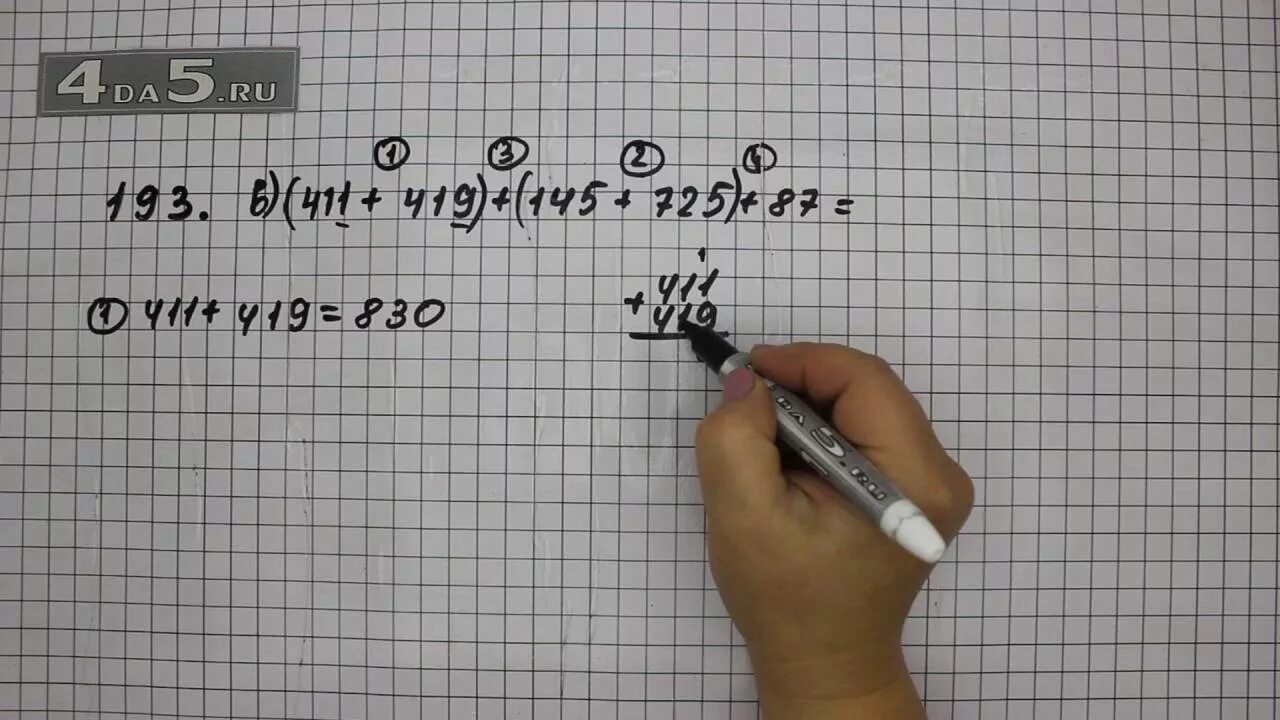 4DA5.RU
① ③ ② ④
193. в) (411 + 419) + (145 + 725) + 87 =
① 411 + 419 = 830
1
411
+
419
DA5.RU